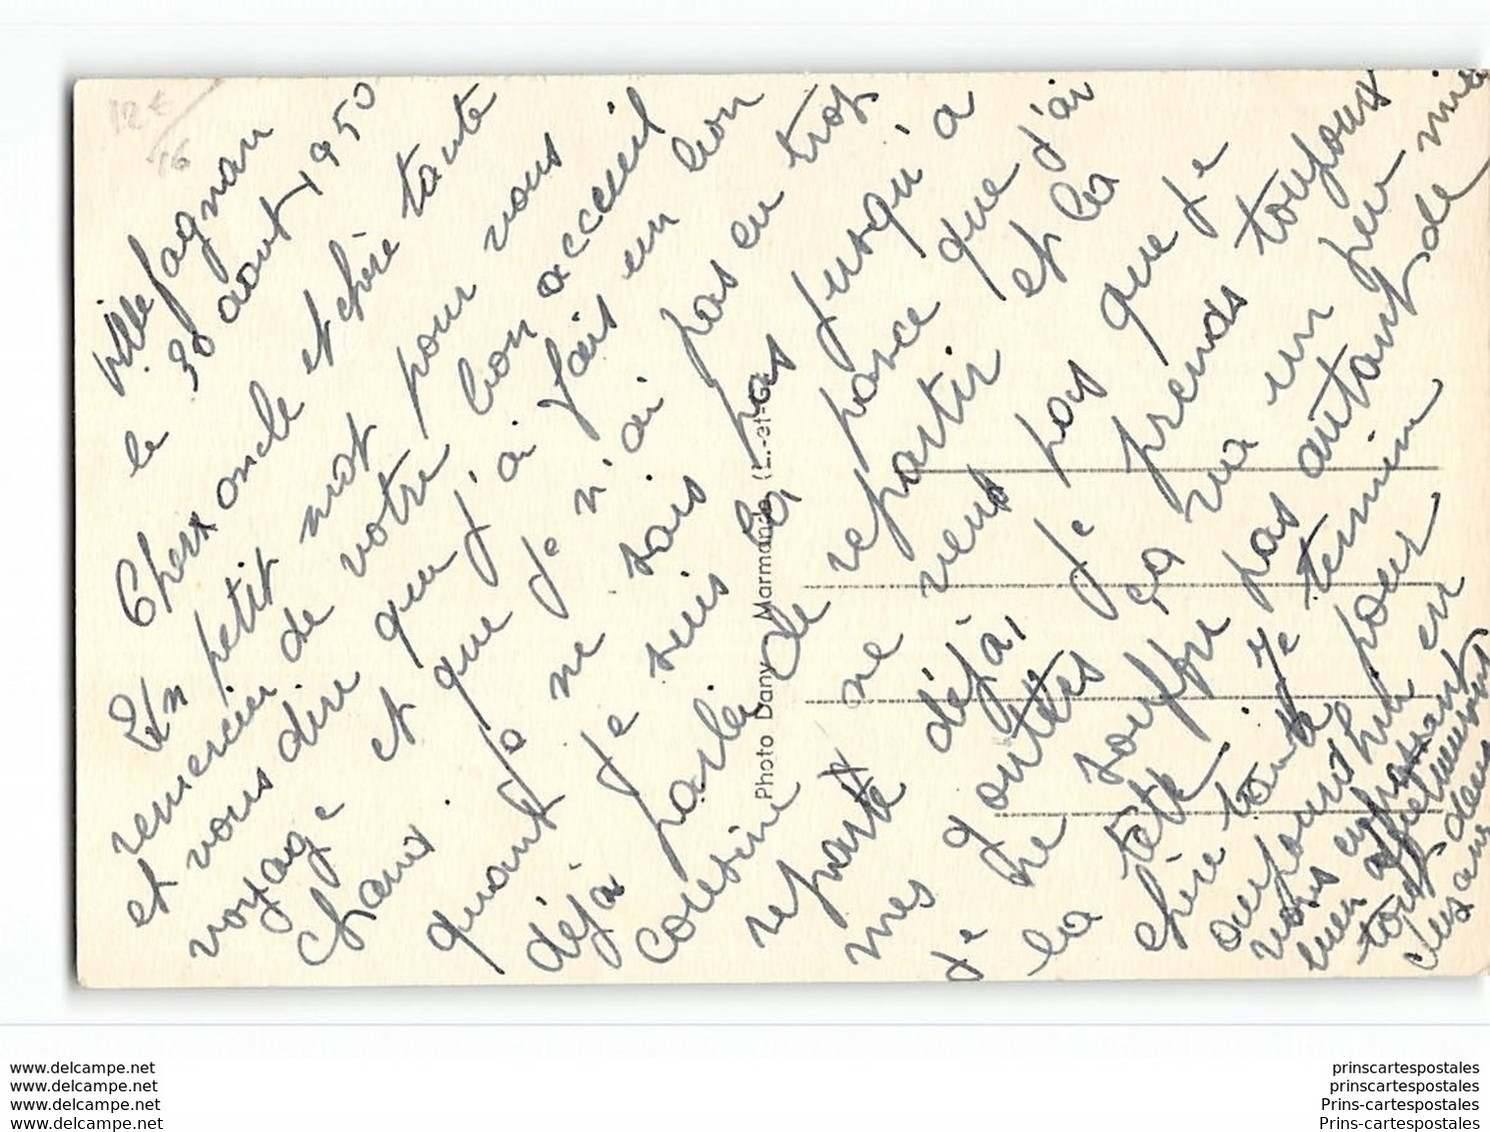 12€
16
Villefagnan
le 30 aout 1950
Cherx oncle et chère tante
Un petit mot pour vous
remercier de votre bon acceuil
et vous dire que j'ai fait un bon
voyage et que je n'ai pas eu trop
chaux
quant je ne sais pas jusqu'à
déjà je suis la parce que j'ai
parler de repartir et la
cousine ne veus pas que je
reparte déjà, je prends toujours
mes gouttes ça va un peu mieu
je ne souffre pas autant de
la tête je termine
chère tante pour
aujourd'hui en
vous embrassant
bien affectueusement
tous deux
Photo Dany Marmande (L.-et-G.)
www.delcampe.net
www.delcampe.net
www.delcampe.net
www.delcampe.net
prinscartespostales
prinscartespostales
Prins-cartespostales
Prins-cartespostales